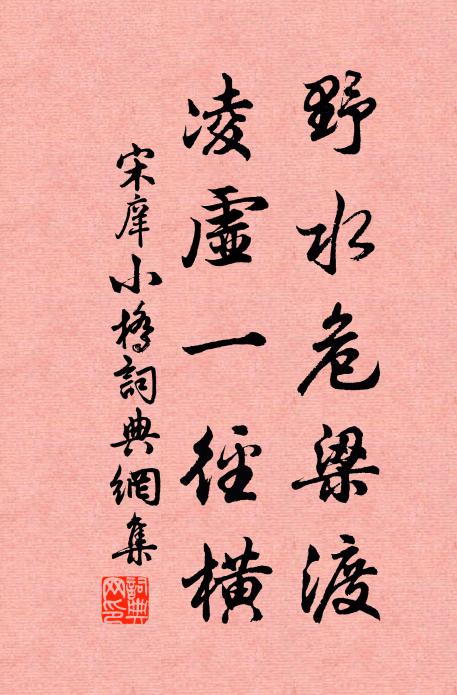 野水危梁渡
凌虛一徑橫
宋庠小橋詞典網集
詞典网印